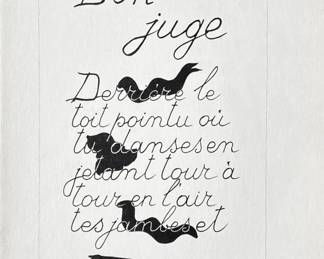 Bon
juge
Derrière le
toit pointu où
tu danses en
jetant tour à
tour en l'air
tes jambes et